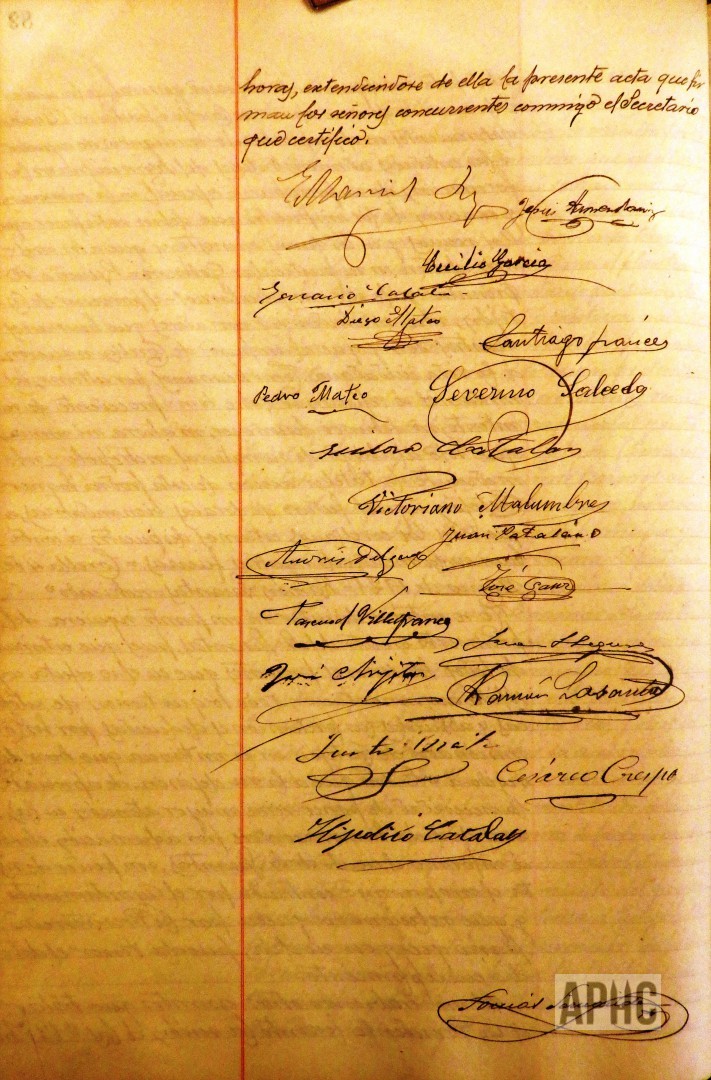 horas, extendiendose de ella la presente acta que fir
man los señores concurrentes conmigo el Secretario
que certifico.
Manuel
Jesús Armendariz
Cecilio Garcia
Diego Mateo
Santiago francés
Pedro Mateo
Severino Salcedo
Isidoro Catalan
Victoriano Malumbres
Juan Catalán
Andrés Delgado
José Sanz
Pascual Villafranca
Juan
José
Ramón Lasanta
Justo
Cesáreo Crespo
Hipolito Catalan
Tomás
APHC
88